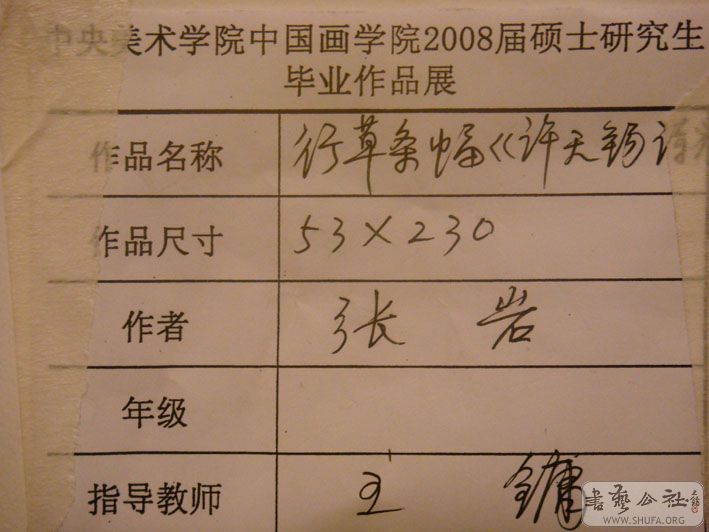 中央美术学院中国画学院2008届硕士研究生
毕业作品展
作品名称 行草条幅《许天锡诗
作品尺寸 53×230
作者 张岩
年级
指导教师 王镛
书艺公社
WWW.SHUFA.ORG